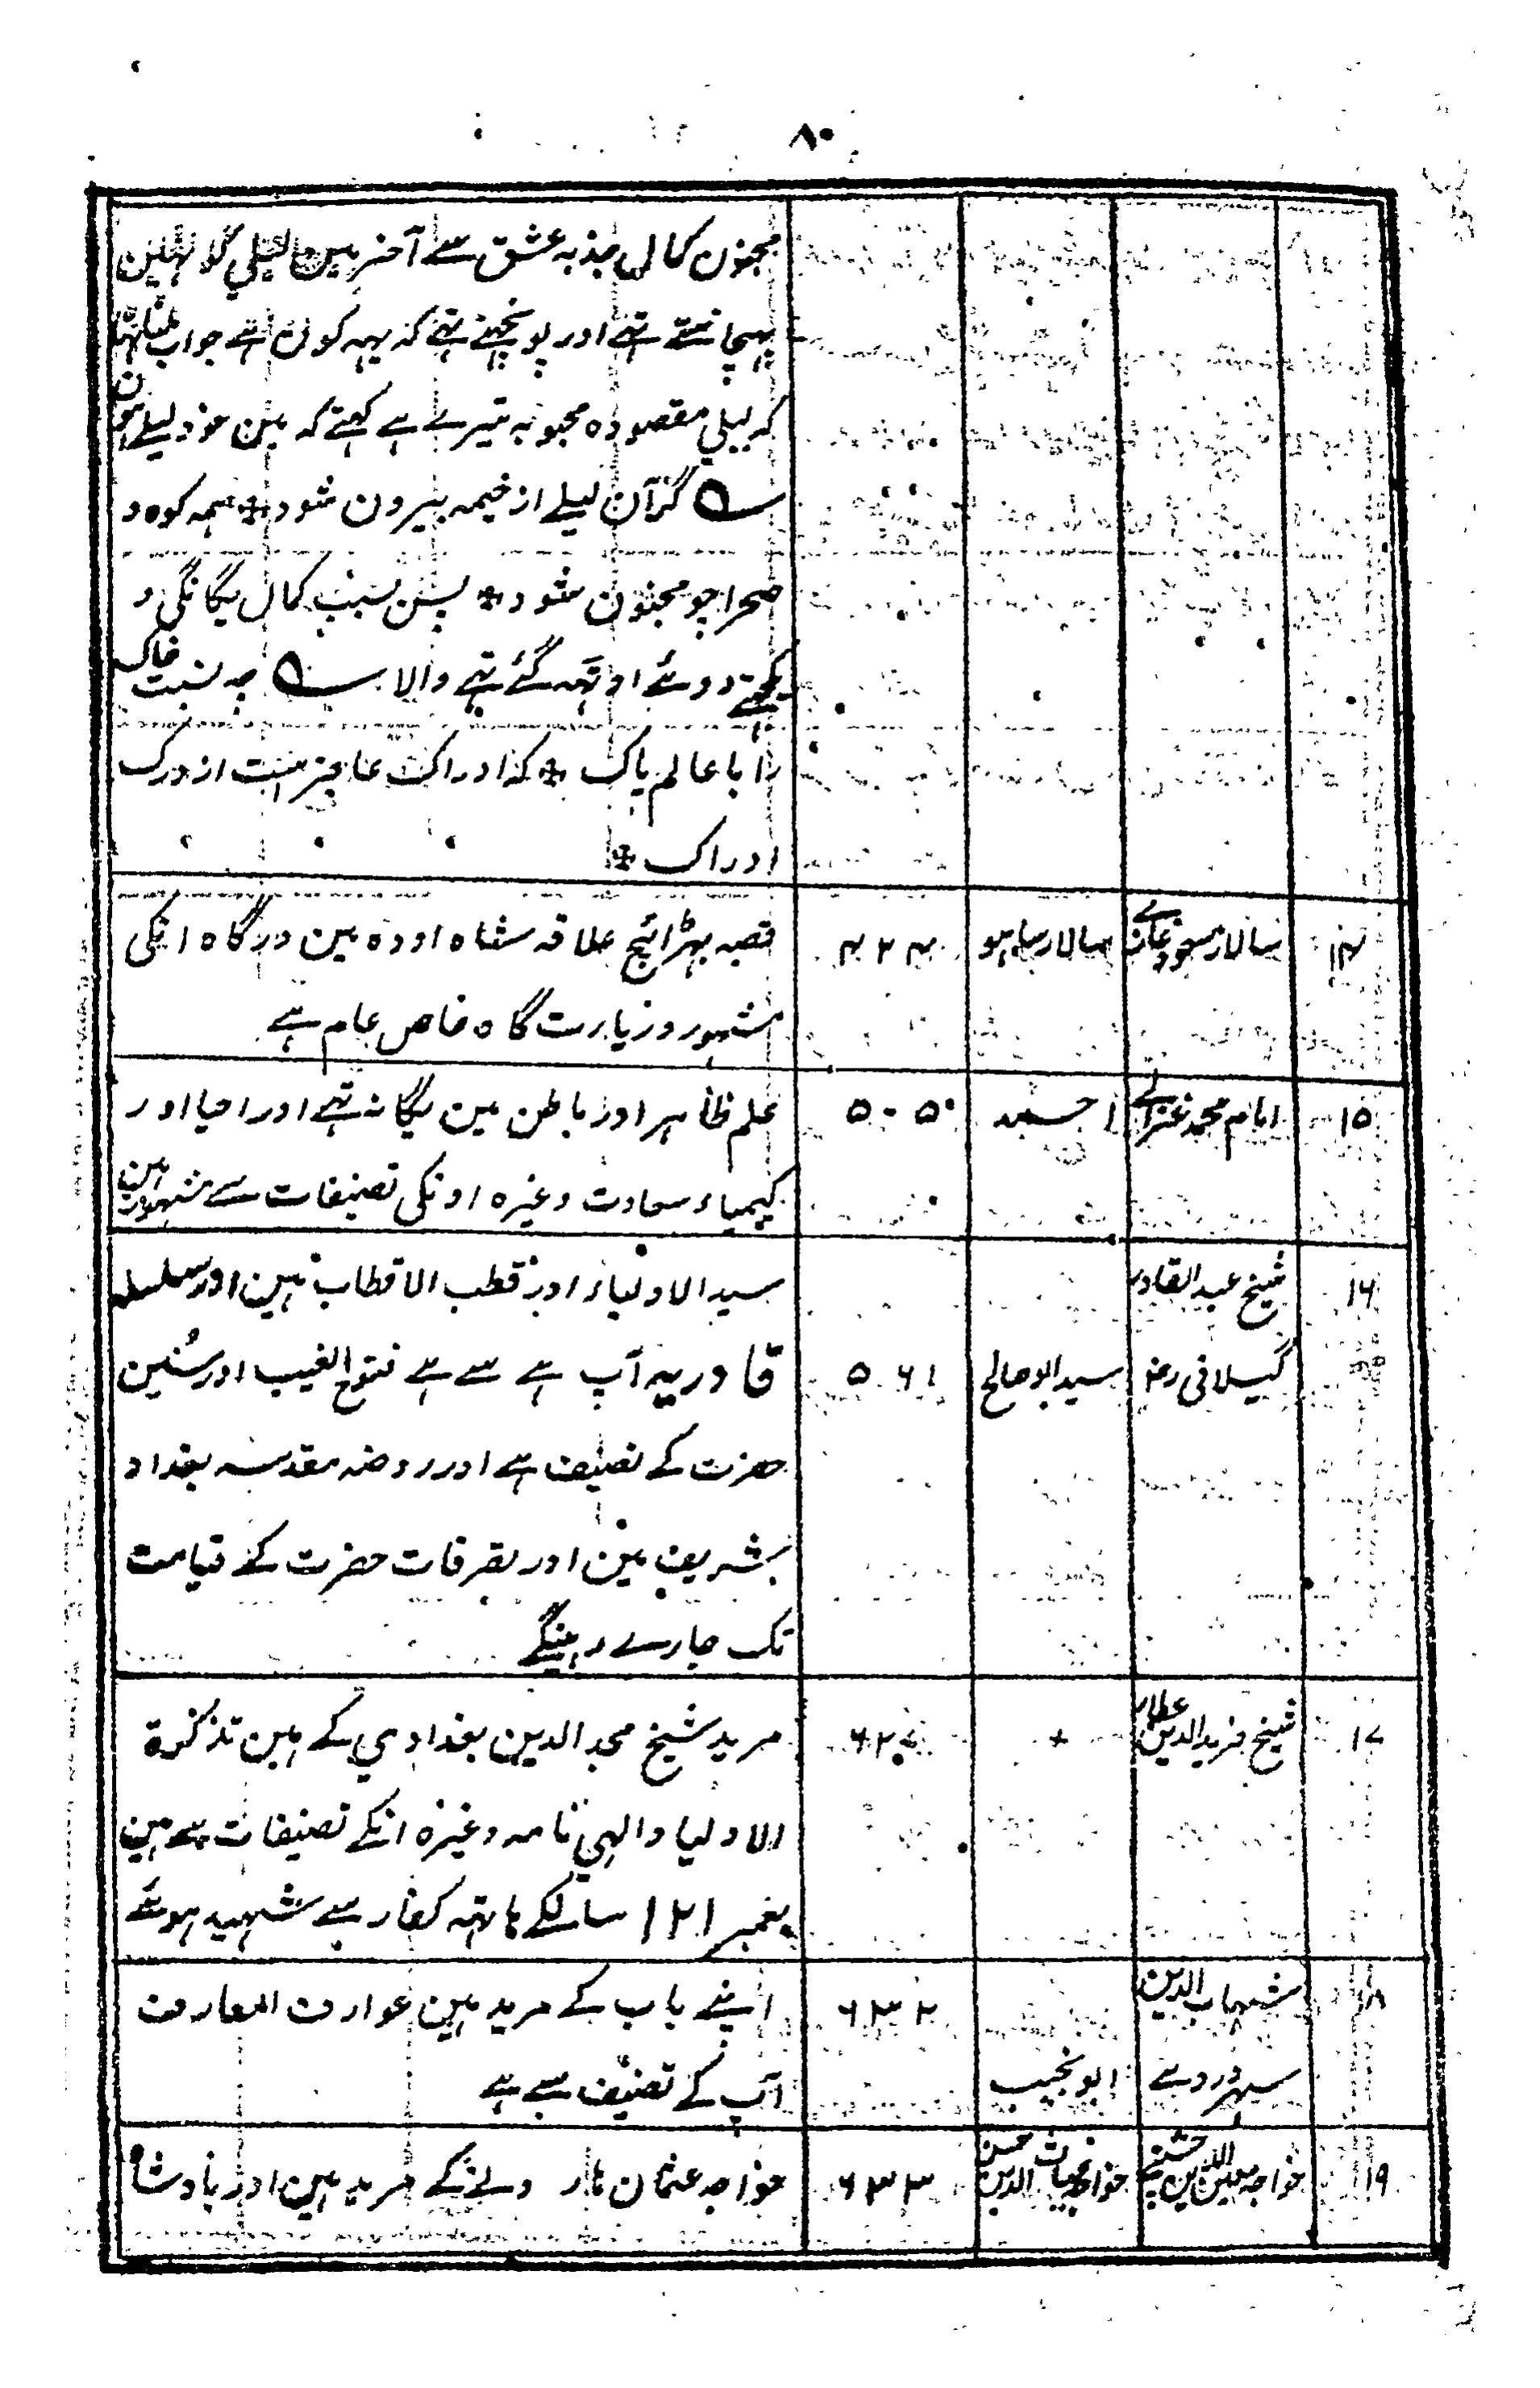 ۸۰
مجنون کمال جذبہ عشق سے آخر مین لیلي کو نہین
پہچانتے تہے اور پونچہتے تہے کہ یہہ کون ہے جواب ملتا تہا
کہ لیلي مقصودہ محبوبہ تیرے ہے کہتے کہ مین خود لیلے ہون
گر آن لیلے از خیمہ بیرون شود * ہمہ کوہ و
صحرا چو مجنون شود * پس بسبب کمال یگانگی و
یکجہتے دوئے اوٹہہ گئے تہے والا چہ نسبت خاک
را با عالم پاک * کہ ادراک عاجز ست از درک
ادراک *
۱۴ سالار مسعود غازے سالار ساہو ۴۲۴ قصبہ بہڑائچ علاقہ شاہ اودہ مین درگاہ انکی
مشہور و زیارت گاہ خاص عام ہے
۱۵ امام محمد غزالے احمد ۵۰۵ علم ظاہر اور باطن مین یگانہ تہے اور احیا اور
کیمیاء سعادت وغیرہ اونکی تصنیفات سے مشہور ہین
۱۶ شیخ عبد القادر سید الاولیاء اور قطب الاقطاب ہین اور سلسلہ
گیلانی رض سید ابو صالح ۵۶۱ قادریہ آپ ہے سے ہے فتوح الغیب اور
حضرت کے تصنیف ہے اور روضہ مقدسہ بغداد
شریف مین اور تصرفات حضرت کے قیامت
تک جارے رہینگے
۱۷ شیخ فرید الدین عطار + ۶۲۷ مرید شیخ مجد الدین بغدادي کے ہین تذکرة
الاولیا و الہي نامہ وغیرہ انکے تصنیفات سے ہین
بعمر ۱۲۱ سالکے ہاتہہ کفار سے شہید ہوئے
۱۸ شہاب الدین ۶۳۲ اپنے باپ کے مرید ہین عوارف المعارف
سہروردے ابو نجیب آپ کے تصنیف سے ہے
۱۹ خواجہ معین الدین چشتے خواجہ غیاث الدین حسن ۶۳۳ خواجہ عثمان ہارونے کے مرید ہین اور بادشاہ